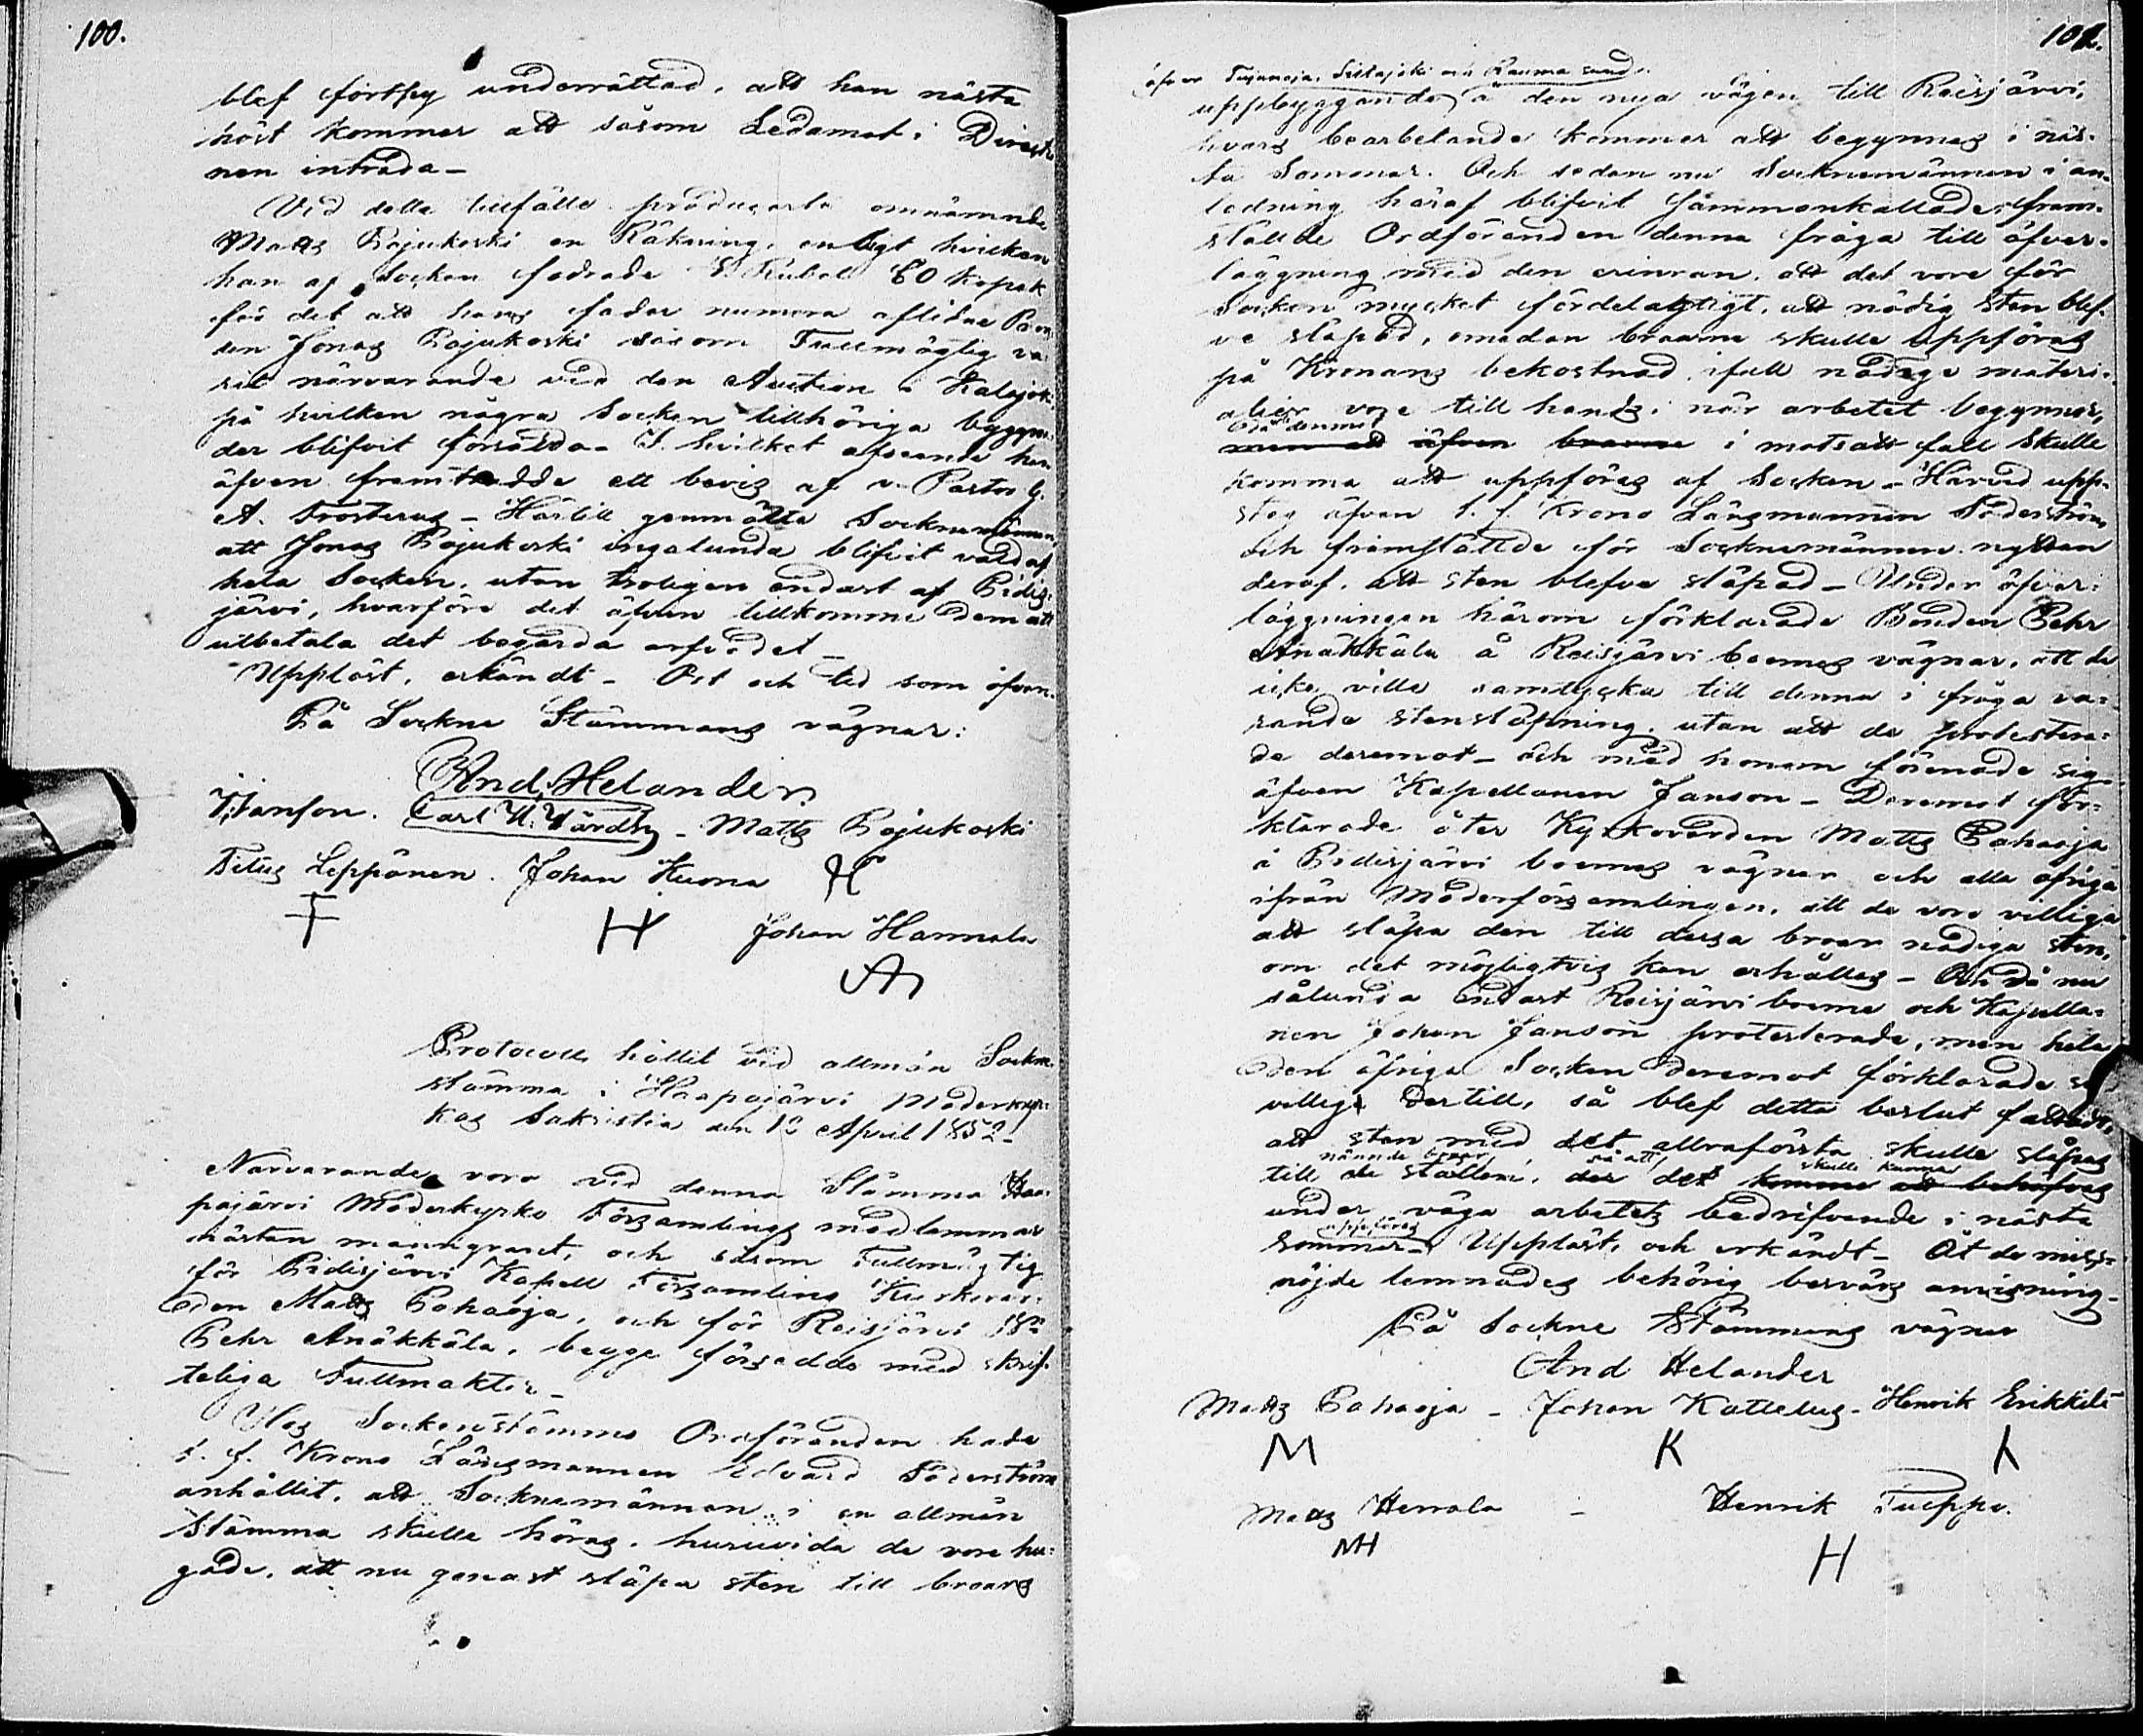 100.
blef förthy underrättad, att han nästa
höst kommer att såsom Ledamot i Directio
nen inträda –
Vid detta tillfälle producerte omnämnde
Matts Pajukoski en Räkning, enligt hvilken
han af Socken fodrade 8 Rubel 60 Kopek
för det att hans fader numera aflidne Bon
den Jonas Pajukoski såsom Fullmägtig va
rit närvarande vid den Auction i Kalajoki
på hvilken några Socken tillhöriga byggna
der blifvit försålda – I hvilket afseende han
äfven framtedde ett bevis af v. Pastor G.
A. Frosterus – Härtill genmälte Socknemännen,
att Jonas Pajukoski ingalunda blifvit vald af
hela Socken, utan troligen endast af Pidis
järvi, hvarföre det äfven tillkomme dem att
utbetala det begärda arfvodet –
Uppläst, erkändt – Ort och tid som ofvan.
På Sockne Stämmans vägnar:
And. Helander.
J. Janson. Carl U. – Matts Pajukoski
Titus Leppänen. Johan Kuona
H Johan Hannula
Protocoll hållet vid allmän Sockne
stämma i Haapajärvi Moderkyr
kas Sakristia den 12 April 1852 –
Närvarande voro vid denna Stämma Haa
pajärvi Moderkyrko Församlings medlemmar
nästan manngrant, och såsom Fullmägtig
för Pidisjärvi Kapell Församling Kyrkovär
den Matts Pahaoja, och för Reisjärvi
Pehr Anäkkälä, begge försedde med skrif
teliga Fullmakter –
Hos Sockenstämmo Ordföranden hade
t. f. Krono Länsmannen Edvard Söderström
anhållit, att Socknemännen i en allmän
Stämma skulle höras, huruvida de vore hu:
gade, att nu genast släpa sten till broars
101.
öfver Tujunoja, Siltajoki och Rauma sund
uppbyggande å den nya vägen till Reisjärvi,
hvars bearbetande kommer att begynnas i näs
ta Sommar. Och sedan nu Socknemännen i an
ledning häraf blifvit sammankallade, fram
stälde Ordföranden denna fråga till öfver
läggning med den erinran, att det vore för
Socken mycket fördelagtigt, att nödig sten blef
ve släpad, emedan broarne skulle uppföras
på Kronans bekostnad, ifall nödige materi
alier vore till hands, när arbetet begynnes,
då dermot
men att äfven broarne i motsatt fall skulle
komma att uppföras af Socken – Härvid upp
steg äfven t. f. Krono Länsmannen Söderström
och framställde för Socknemännen nyttan
deraf, att sten blefve släpad – Under öfver
läggningen härom förklarade Bonden Pehr
Anäkkälä å Reisjärvi boernes vägnar, att de
icke ville samtycka till denna i fråga va
rande stensläpning, utan att de protestera
de deremot – och med honom förenade sig
äfven Kapellanen Janson – Deremot för
klarade åter Kyrkovärden Matts Pahaoja
å Pidisjärvi boernes vägnar och alla öfriga
ifrån Moderförsamlingen, att de voro villiga
att släpa den till dessa broar nödiga sten,
om det möjligtvis kan erhållas – Och då nu
sålunda endast Reisjärvi boerne och Kapella
nen Johan Janson protesterade, men hela
den öfriga Socken deremot förklarade sig
villige dertill, så blef detta beslut fattadt,
att sten med det allraförsta skulle släpas
nämnde broar så att skulle kunna
till de ställen, der det komme att behöfvas
under väga arbetets bedrifvande i nästa
uppföras
Sommar – Uppläst, och erkändt – Åt de miss
nöjde lemnades behörig besvärs anvisning –
På Sockne Stämmans vägnar
And Helander
Matts Pahaoja – Johan Kattelus – Henrik Erikkilä
M K
Matts Herrala – Henrik Tuppu.
MH H